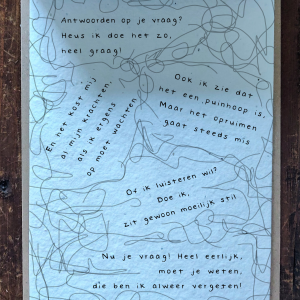 Antwoorden op je vraag?
Heus ik doe het zo,
heel graag!
En het kost mij
al mijn krachten,
als ik ergens
op moet wachten
Ook ik zie dat
het een puinhoop is.
Maar het opruimen
gaat steeds mis
Of ik luisteren wil?
Doe ik,
zit gewoon moeilijk stil
Nu je vraag! Heel eerlijk,
moet je weten,
die ben ik alweer vergeten!